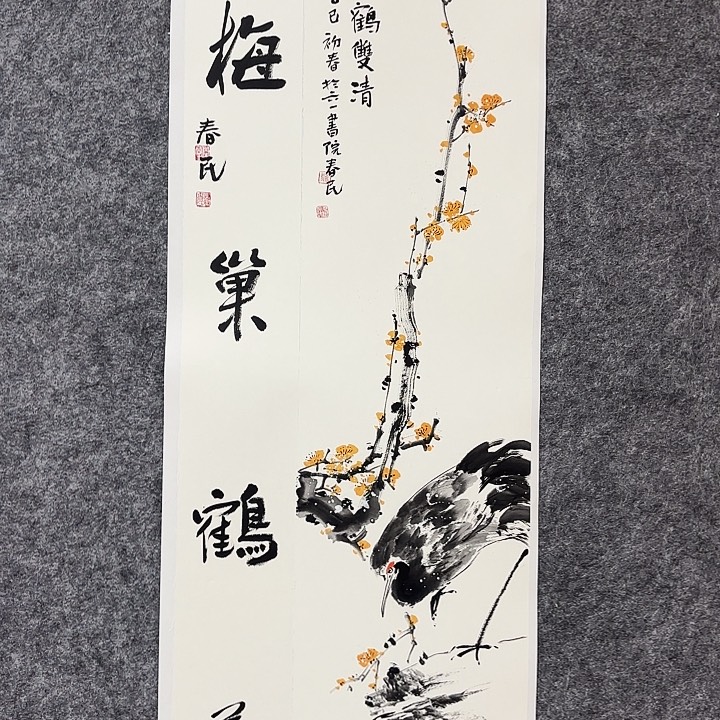 鶴雙清
巳初春於六一書院春民
梅
巢
鶴
春民